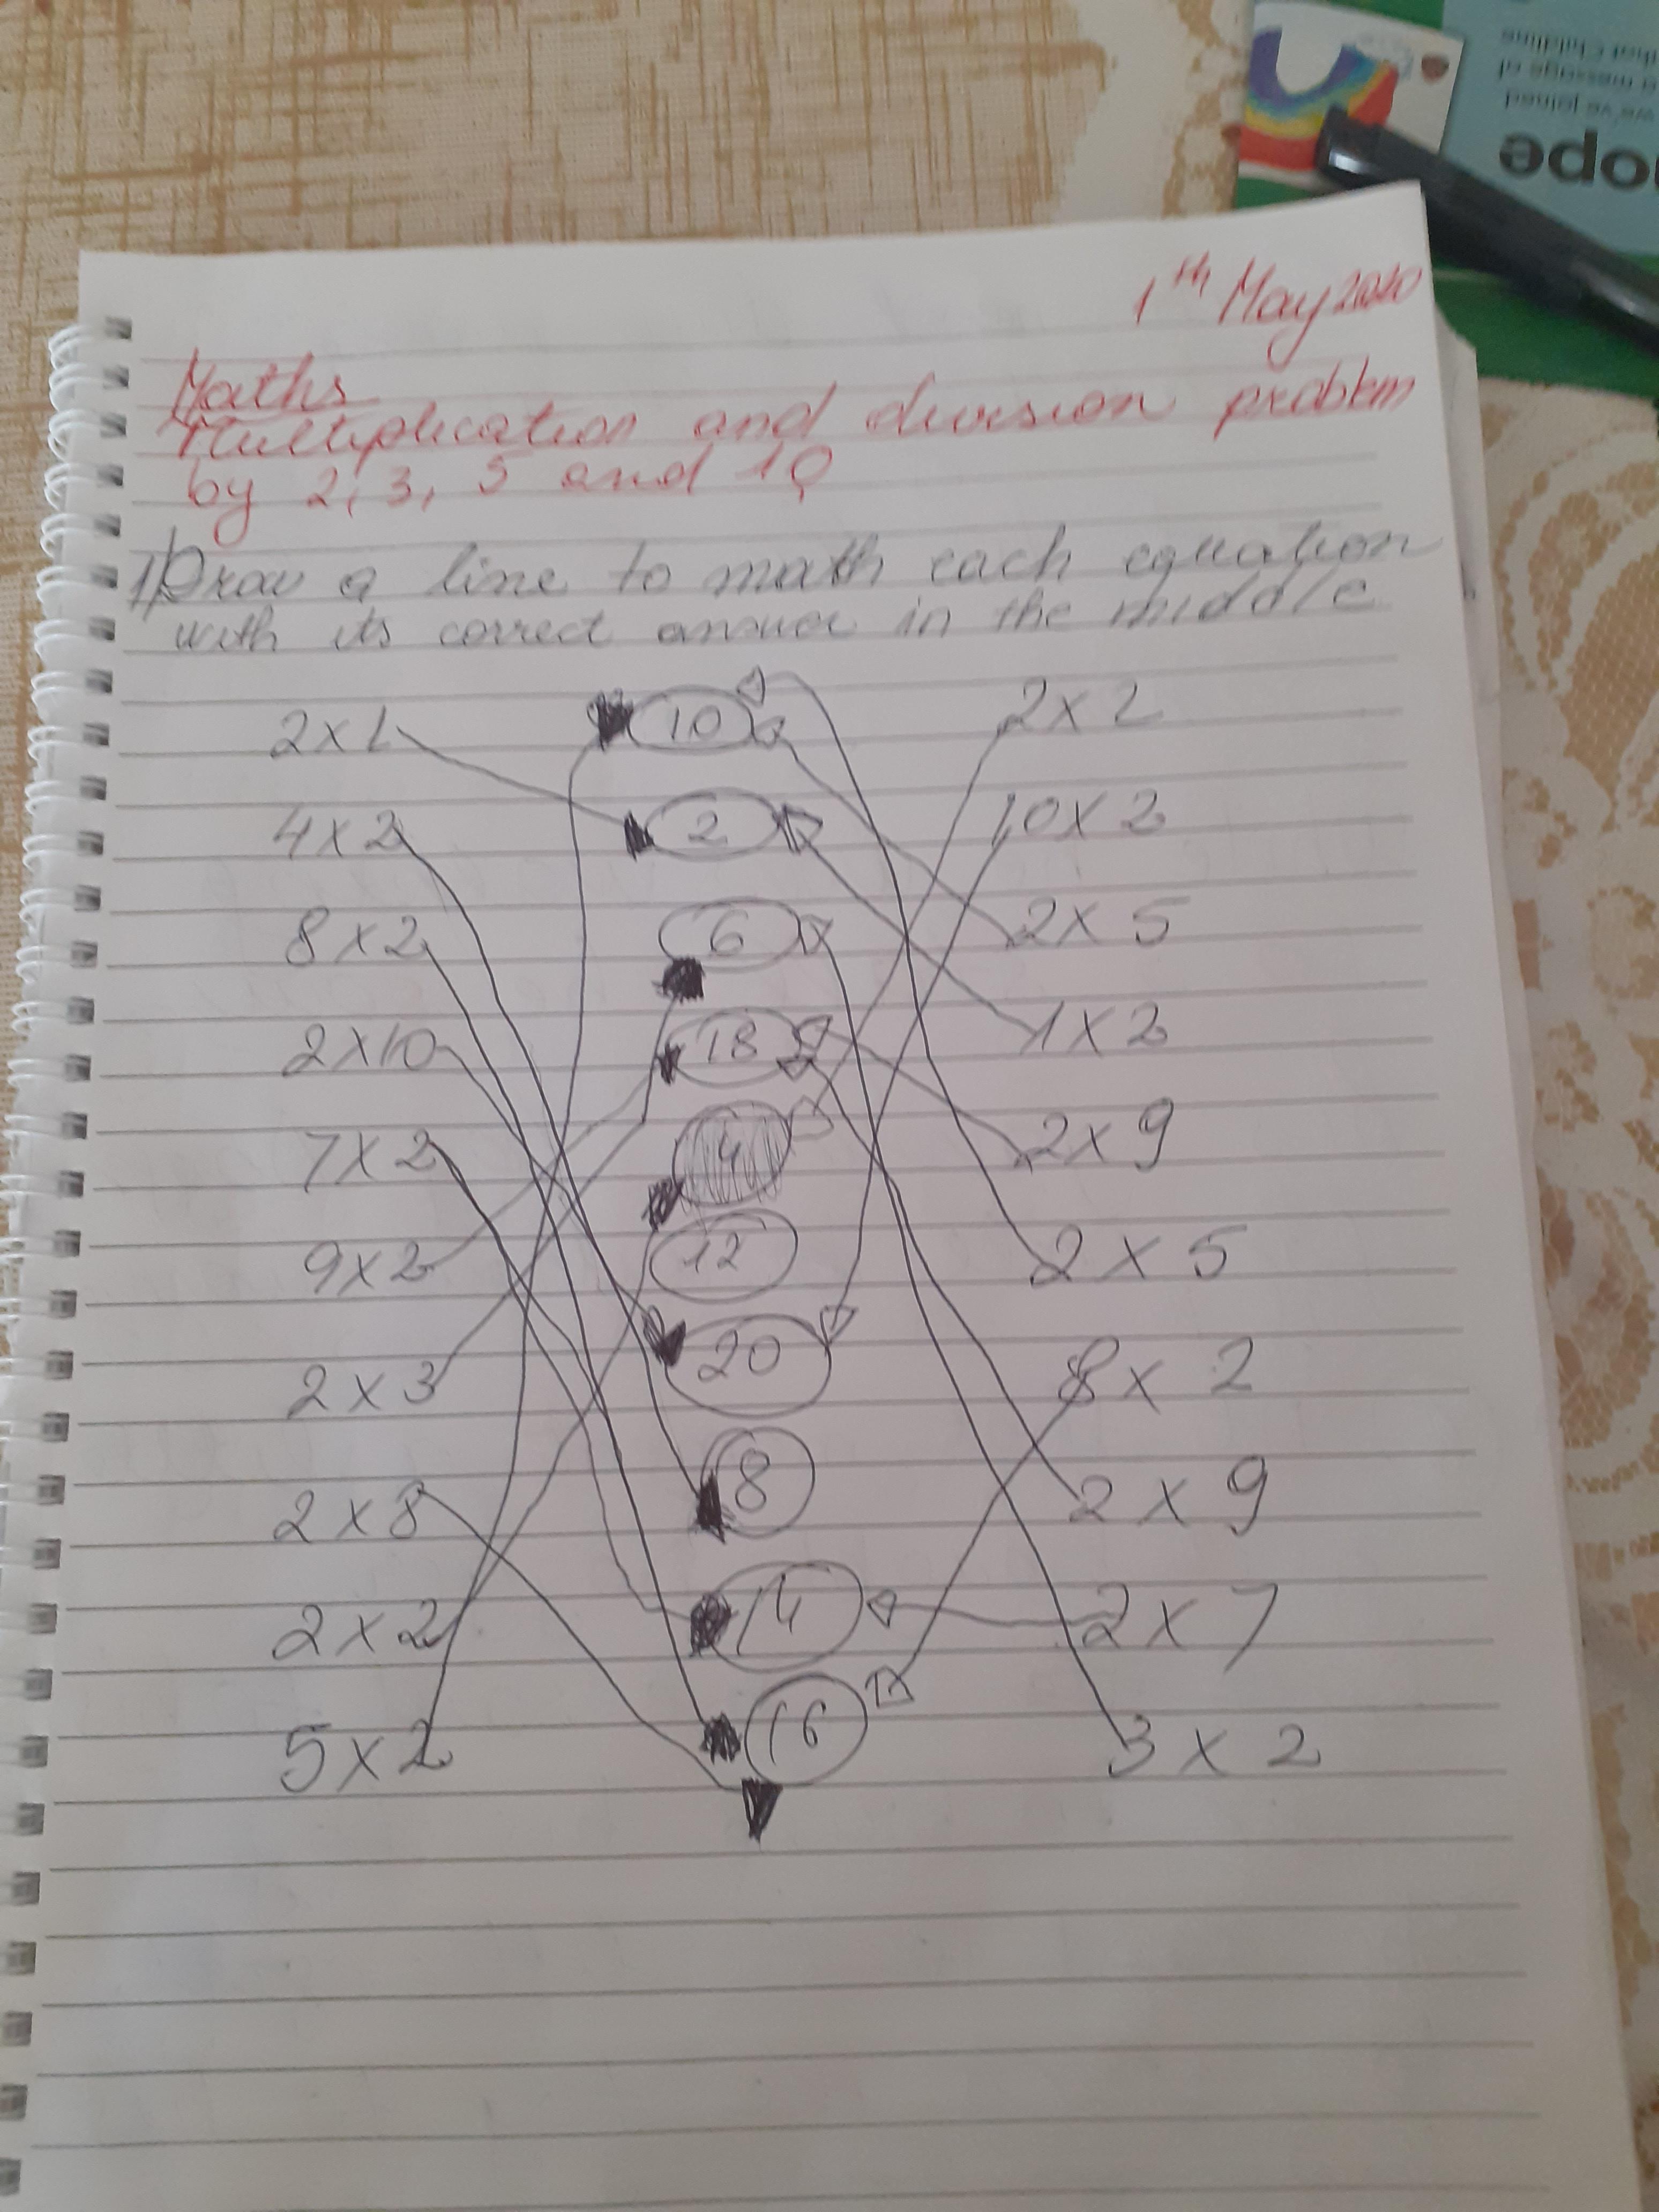 1th May 2020
Maths
Multiplication and division problem
by 2, 3, 5 and 10
1) Draw a line to math each equation
with its correct answer in the middle
2x1 10 2x2
4x2 2 10x2
8x2 6 2x5
2x10 18 1x2
7x2 4 2x9
9x2 12 2x5
2x3 20 8x2
2x8 8 2x9
2x2 14 2x7
5x2 16 3x2
hope
we've joined
a message of
that Childline